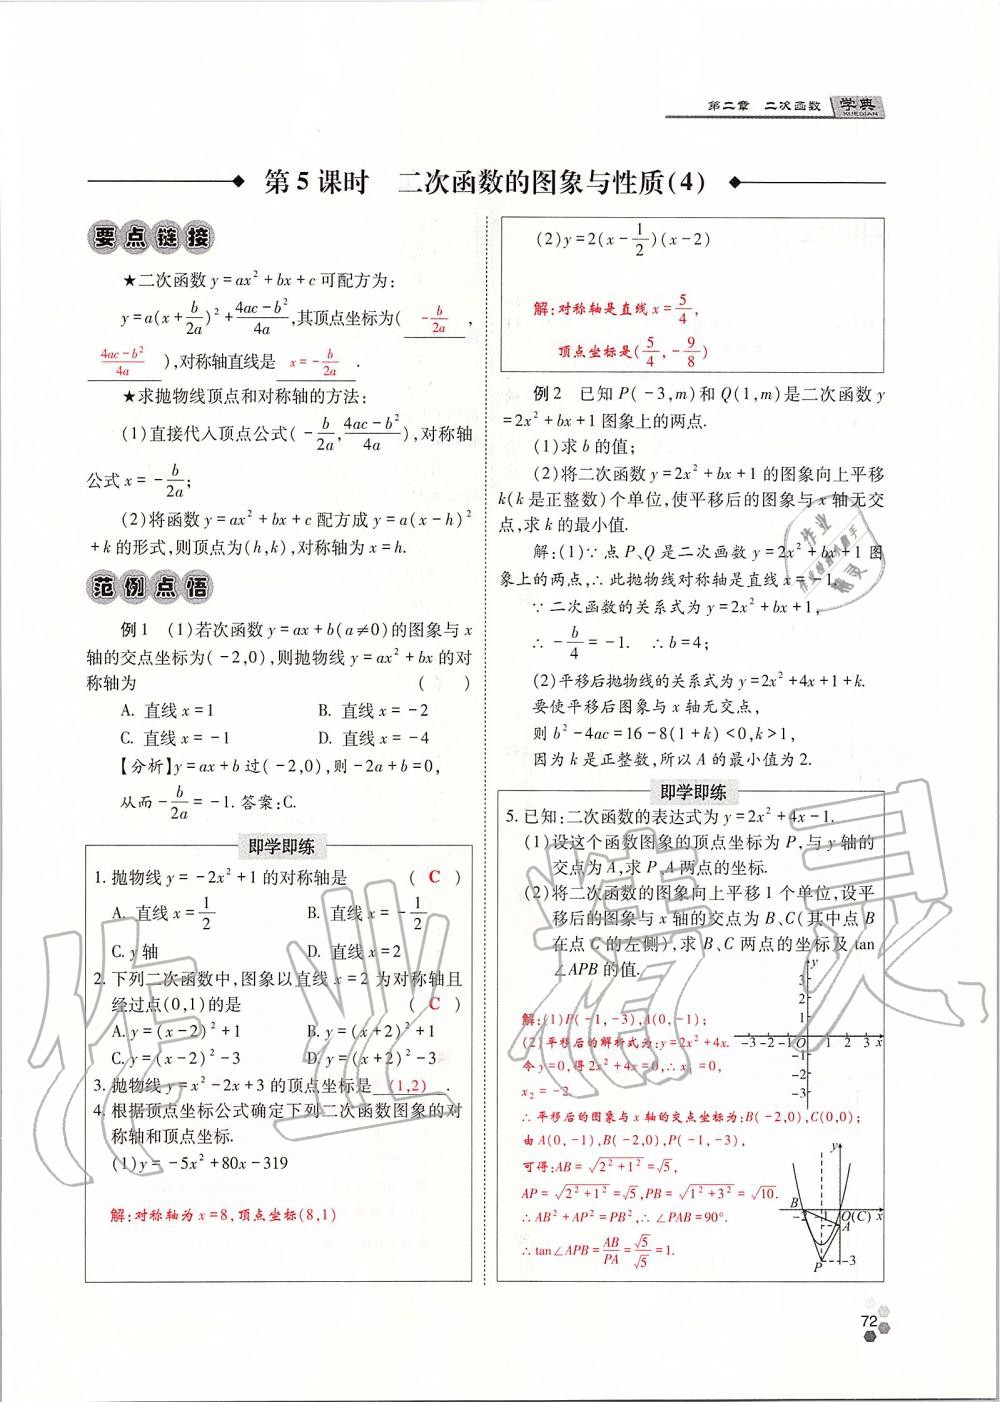 第二章 二次函数 学典
XUEDIAN
第5课时 二次函数的图象与性质(4)
要点链接
★二次函数y=ax²+bx+c可配方为:
y=a(x+b/2a)²+(4ac-b²)/4a,其顶点坐标为( -b/2a ,
(4ac-b²)/4a ),对称轴直线是 x=-b/2a .
★求抛物线顶点和对称轴的方法:
(1)直接代入顶点公式(-b/2a,(4ac-b²)/4a),对称轴
公式x=-b/2a;
(2)将函数y=ax²+bx+c配方成y=a(x-h)²
+k的形式,则顶点为(h,k),对称轴为x=h.
范例点悟
例1 (1)若次函数y=ax+b(a≠0)的图象与x
轴的交点坐标为(-2,0),则抛物线y=ax²+bx的对
称轴为 ( )
A. 直线x=1 B. 直线x=-2
C. 直线x=-1 D. 直线x=-4
【分析】y=ax+b过(-2,0),则-2a+b=0,
从而-b/2a=-1. 答案:C.
即学即练
1. 抛物线y=-2x²+1的对称轴是 ( C )
A. 直线x=1/2 B. 直线x=-1/2
C. y轴 D. 直线x=2
2. 下列二次函数中,图象以直线x=2为对称轴且
经过点(0,1)的是 ( C )
A. y=(x-2)²+1 B. y=(x+2)²+1
C. y=(x-2)²-3 D. y=(x+2)²-3
3. 抛物线y=x²-2x+3的顶点坐标是 (1,2) .
4. 根据顶点坐标公式确定下列二次函数图象的对
称轴和顶点坐标.
(1)y=-5x²+80x-319
解:对称轴为x=8,顶点坐标(8,1)
(2)y=2(x-1/2)(x-2)
解:对称轴是直线x=5/4,
顶点坐标是(5/4,-9/8)
例2 已知P(-3,m)和Q(1,m)是二次函数y
=2x²+bx+1图象上的两点.
(1)求b的值;
(2)将二次函数y=2x²+bx+1的图象向上平移
k(k是正整数)个单位,使平移后的图象与x轴无交
点,求k的最小值.
解:(1)∵点P、Q是二次函数y=2x²+bx+1图
象上的两点,∴此抛物线对称轴是直线x=-1.
∵二次函数的关系式为y=2x²+bx+1,
∴-b/4=-1. ∴b=4;
(2)平移后抛物线的关系式为y=2x²+4x+1+k.
要使平移后图象与x轴无交点,
则b²-4ac=16-8(1+k)<0,k>1,
因为k是正整数,所以A的最小值为2.
即学即练
5. 已知:二次函数的表达式为y=2x²+4x-1.
(1)设这个函数图象的顶点坐标为P,与y轴的
交点为A,求P、A两点的坐标.
(2)将二次函数的图象向上平移1个单位,设平
移后的图象与x轴的交点为B、C(其中点B
在点C的左侧),求B、C两点的坐标及tan
∠APB的值.
解:(1)P(-1,-3),A(0,-1);
(2)平移后的解析式为:y=2x²+4x.
令y=0,得2x²+4x=0,x₁=0,
x₂=-2.
∴平移后的图象与x轴的交点坐标为:B(-2,0),C(0,0);
由A(0,-1),B(-2,0),P(-1,-3),
可得:AB=√(2²+1²)=√5,
AP=√(2²+1²)=√5,PB=√(1²+3²)=√10.
∴AB²+AP²=PB²,∴∠PAB=90°.
∴tan∠APB=AB/PA=√5/√5=1.
y
3
2
1
-3-2-1 O 1 2 3 x
-1
-2
-3
y
B -2 -1 O(C) x
A
P -3
72
作业精灵